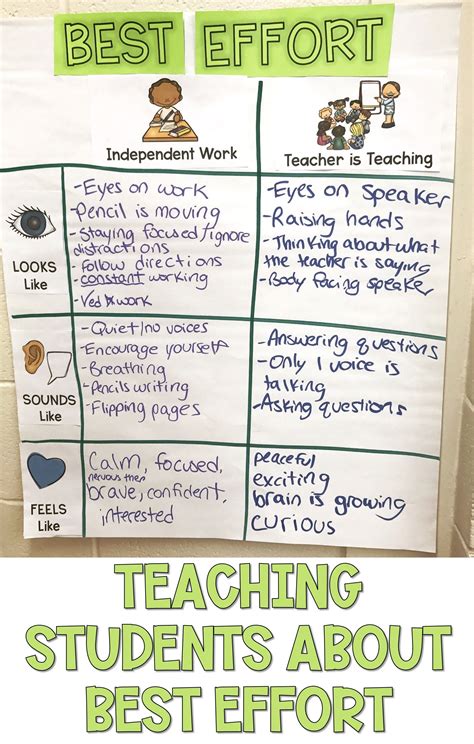 BEST EFFORT
Independent Work
Teacher is Teaching
LOOKS
Like
-Eyes on work
-Pencil is moving
-Staying focused/ignore
distractions
-Follow directions
-constant working
-Ved work
-Eyes on Speaker
-Raising hands
-Thinking about what
the teacher is saying
-Body facing speaker
SOUNDS
Like
-Quiet/no voices
-Encourage yourself
-Breathing
-Pencils writing
-Flipping pages
-Answering questions
-Only 1 voice is
talking
-Asking questions
FEELS
Like
Calm, focused,
nervous then
brave, confident,
interested
peaceful
exciting
brain is growing
curious
TEACHING
STUDENTS ABOUT
BEST EFFORT